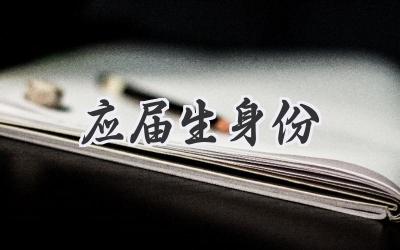 应届生身份